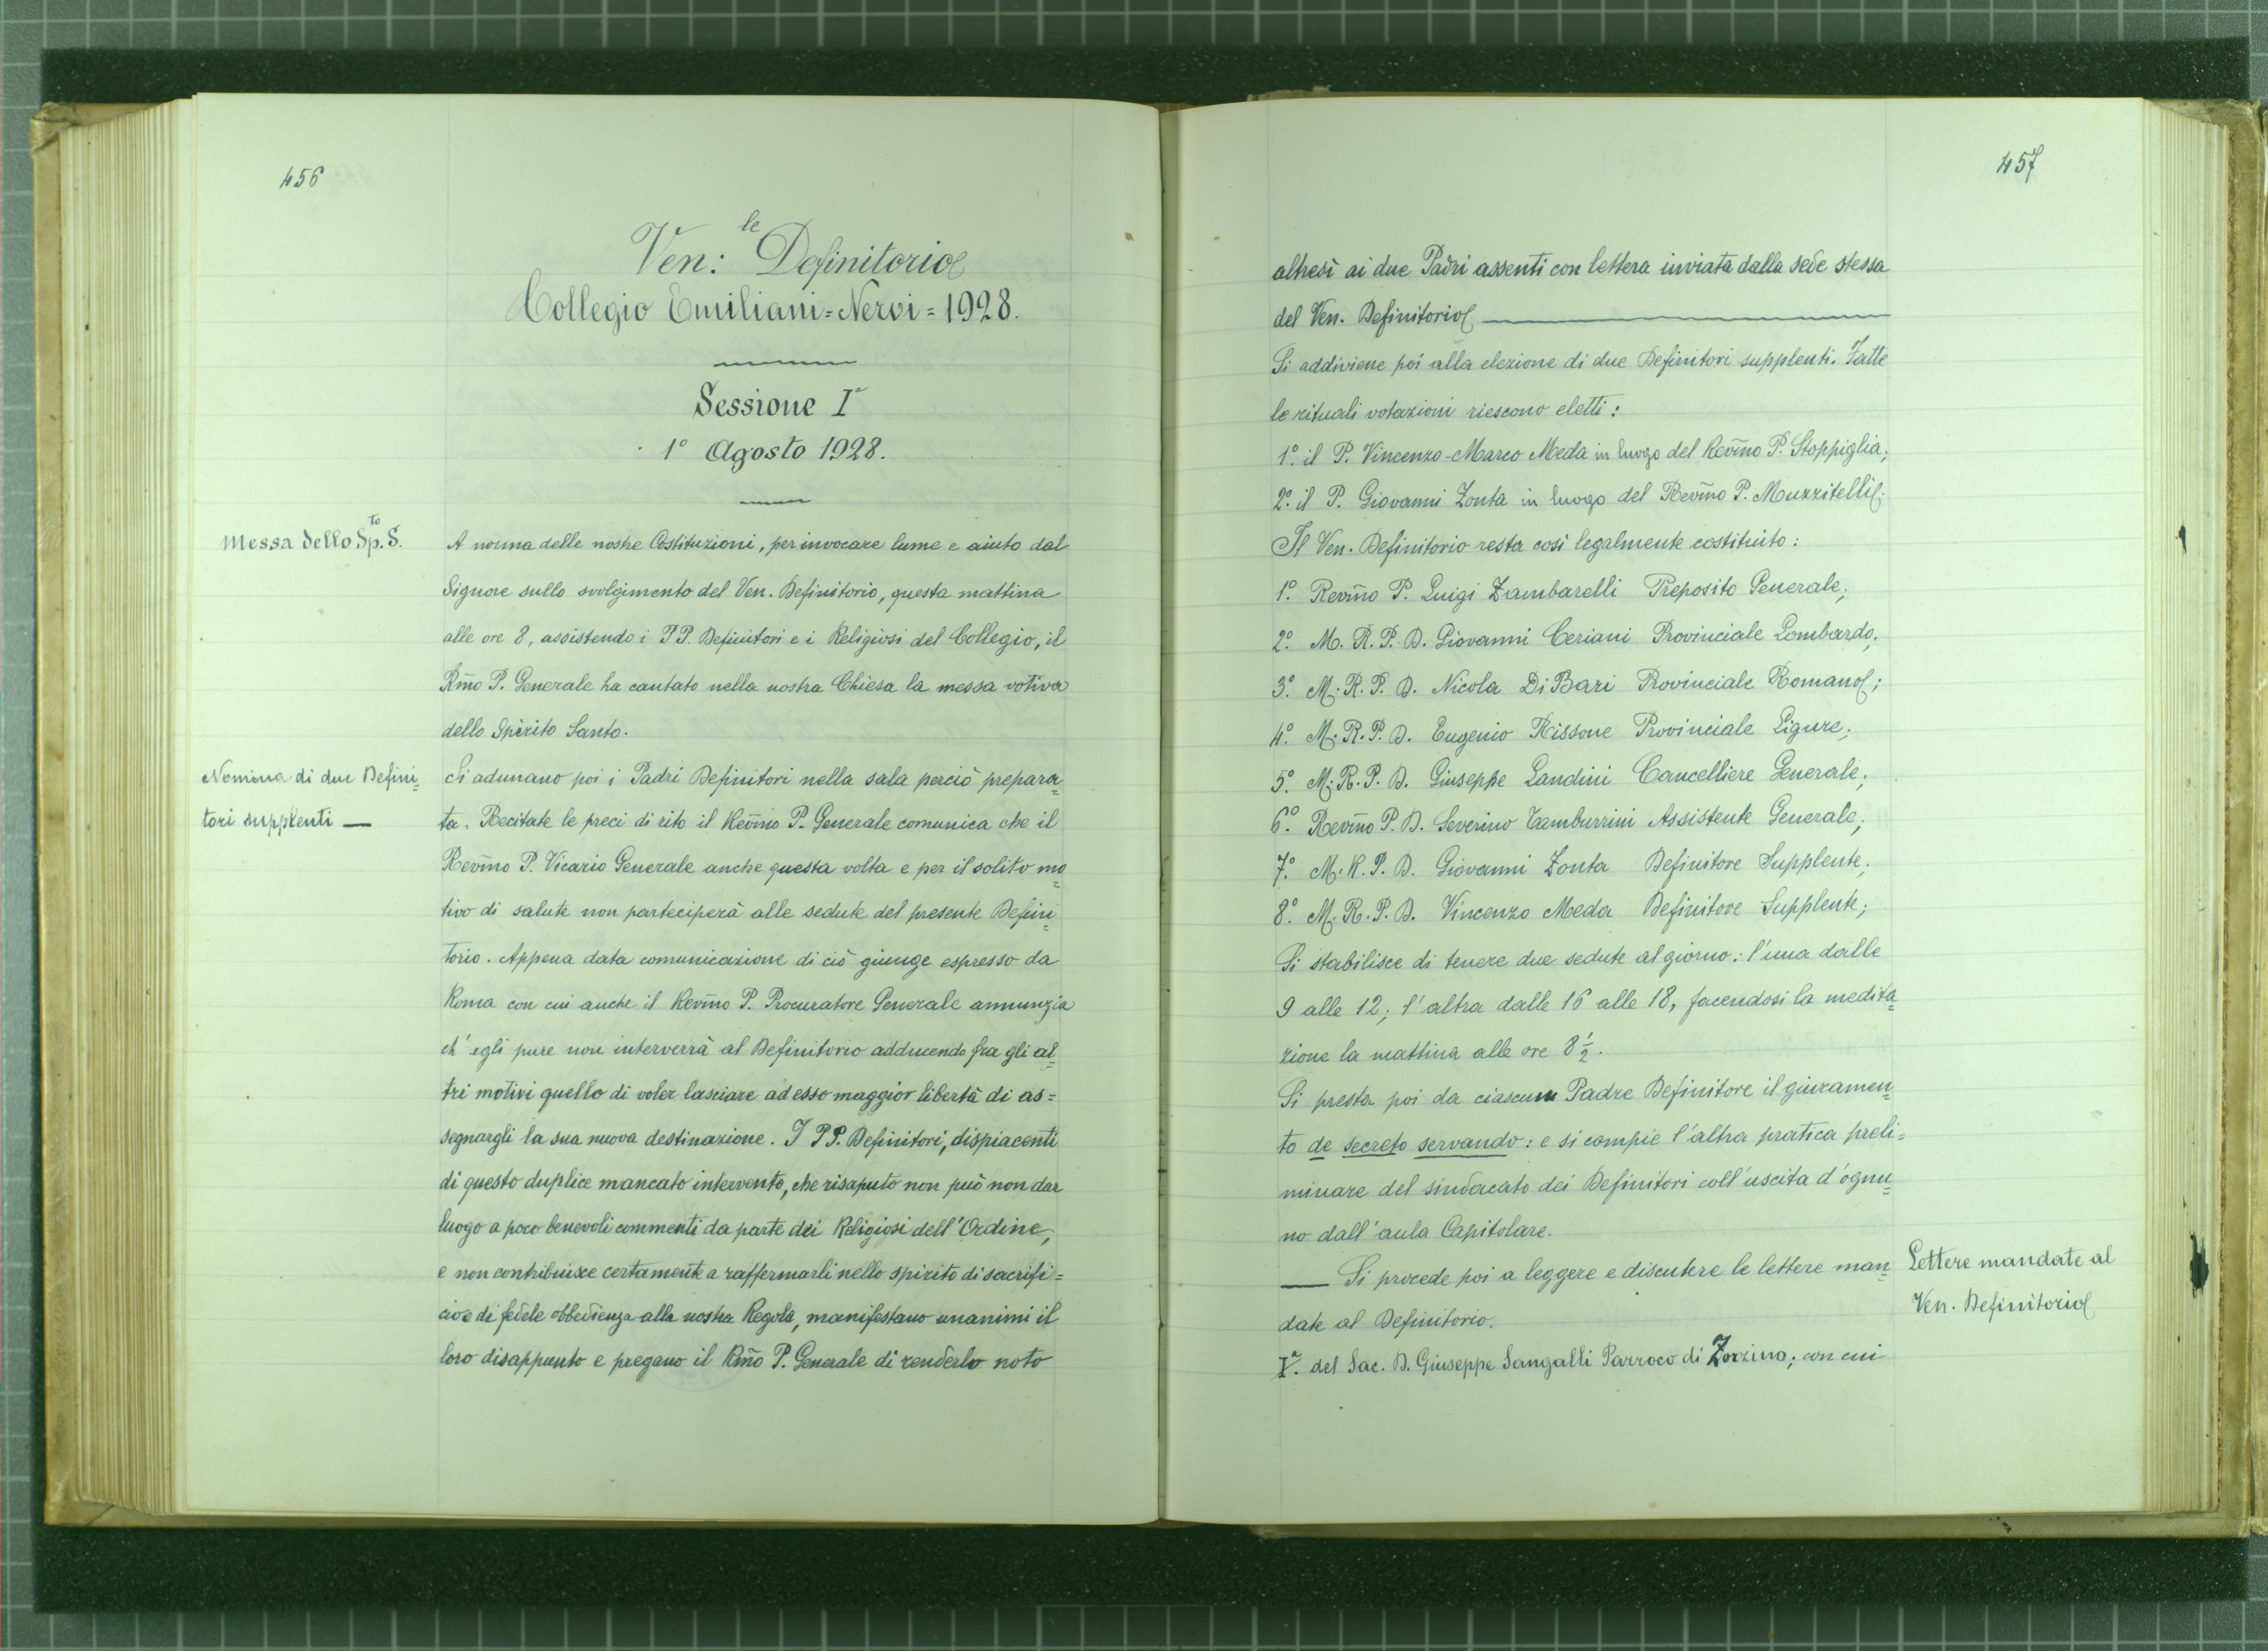 456
Ven:le Definitorio
Collegio Emiliani=Nervi=1928.
Sessione Iª
1º Agosto 1928.
Messa dello Sp.to S.
A norma delle nostre Costituzioni, per invocare lume e aiuto dal
Signore sullo svolgimento del Ven. Definitorio, questa mattina
alle ore 8, assistendo i PP. Definitori e i Religiosi del Collegio, il
Rm̃o P. Generale ha cantato nella nostra Chiesa la messa votiva
dello Spirito Santo.
Nomina di due Defini=
tori supplenti —
Si adunano poi i Padri Definitori nella sala perciò prepara=
ta. Recitate le preci di rito il Revm̃o P. Generale comunica che il
Revm̃o P. Vicario Generale anche questa volta e per il solito mo=
tivo di salute non parteciperà alle sedute del presente Defini=
torio. Appena data comunicazione di ciò giunge espresso da
Roma con cui anche il Revm̃o P. Procuratore Generale annunzia
ch'egli pure non interverrà al Definitorio adducendo fra gli al=
tri motivi quello di voler lasciare ad esso maggior libertà di as=
segnargli la sua nuova destinazione. I PP. Definitori, dispiacenti
di questo duplice mancato intervento, che risaputo non può non dar
luogo a poco benevoli commenti da parte dei Religiosi dell'Ordine,
e non contribuisce certamente a raffermarli nello spirito di sacrifi=
cio e di fedele obbedienza alla nostra Regola, manifestano unanimi il
loro disappunto e pregano il Rm̃o P. Generale di renderlo noto
457
altresì ai due Padri assenti con lettera inviata dalla sede stessa
del Ven. Definitorio —
Si addiviene poi alla elezione di due Definitori supplenti. Fatte
le rituali votazioni riescono eletti:
1º. il P. Vincenzo-Marco Meda in luogo del Revm̃o P. Stoppiglia;
2º. il P. Giovanni Zonta in luogo del Revm̃o P. Muzzitelli.
Il Ven. Definitorio resta così legalmente costituito:
1º. Revm̃o P. Luigi Zambarelli Preposito Generale;
2º. M. R. P. D. Giovanni Ceriani Provinciale Lombardo;
3º. M. R. P. D. Nicola Di Bari Provinciale Romano;
4º. M. R. P. D. Eugenio Rissone Provinciale Ligure;
5º. M. R. P. D. Giuseppe Landini Cancelliere Generale;
6º. Revm̃o P. D. Severino Tamburrini Assistente Generale;
7º. M. R. P. D. Giovanni Zonta Definitore Supplente;
8º. M. R. P. D. Vincenzo Meda Definitore Supplente;
Si stabilisce di tenere due sedute al giorno: l'una dalle
9 alle 12; l'altra dalle 16 alle 18, facendosi la medita=
zione la mattina alle ore 8 ½.
Si presta poi da ciascun Padre Definitore il giuramen=
to de secreto servando: e si compie l'altra pratica preli=
minare del sindacato dei Definitori coll'uscita d'ognu=
no dall'aula Capitolare.
— Si procede poi a leggere e discutere le lettere man=
date al Definitorio.
Lettere mandate al
Ven. Definitorio
Iª. del Sac. D. Giuseppe Sangalli Parroco di Zorzino; con cui